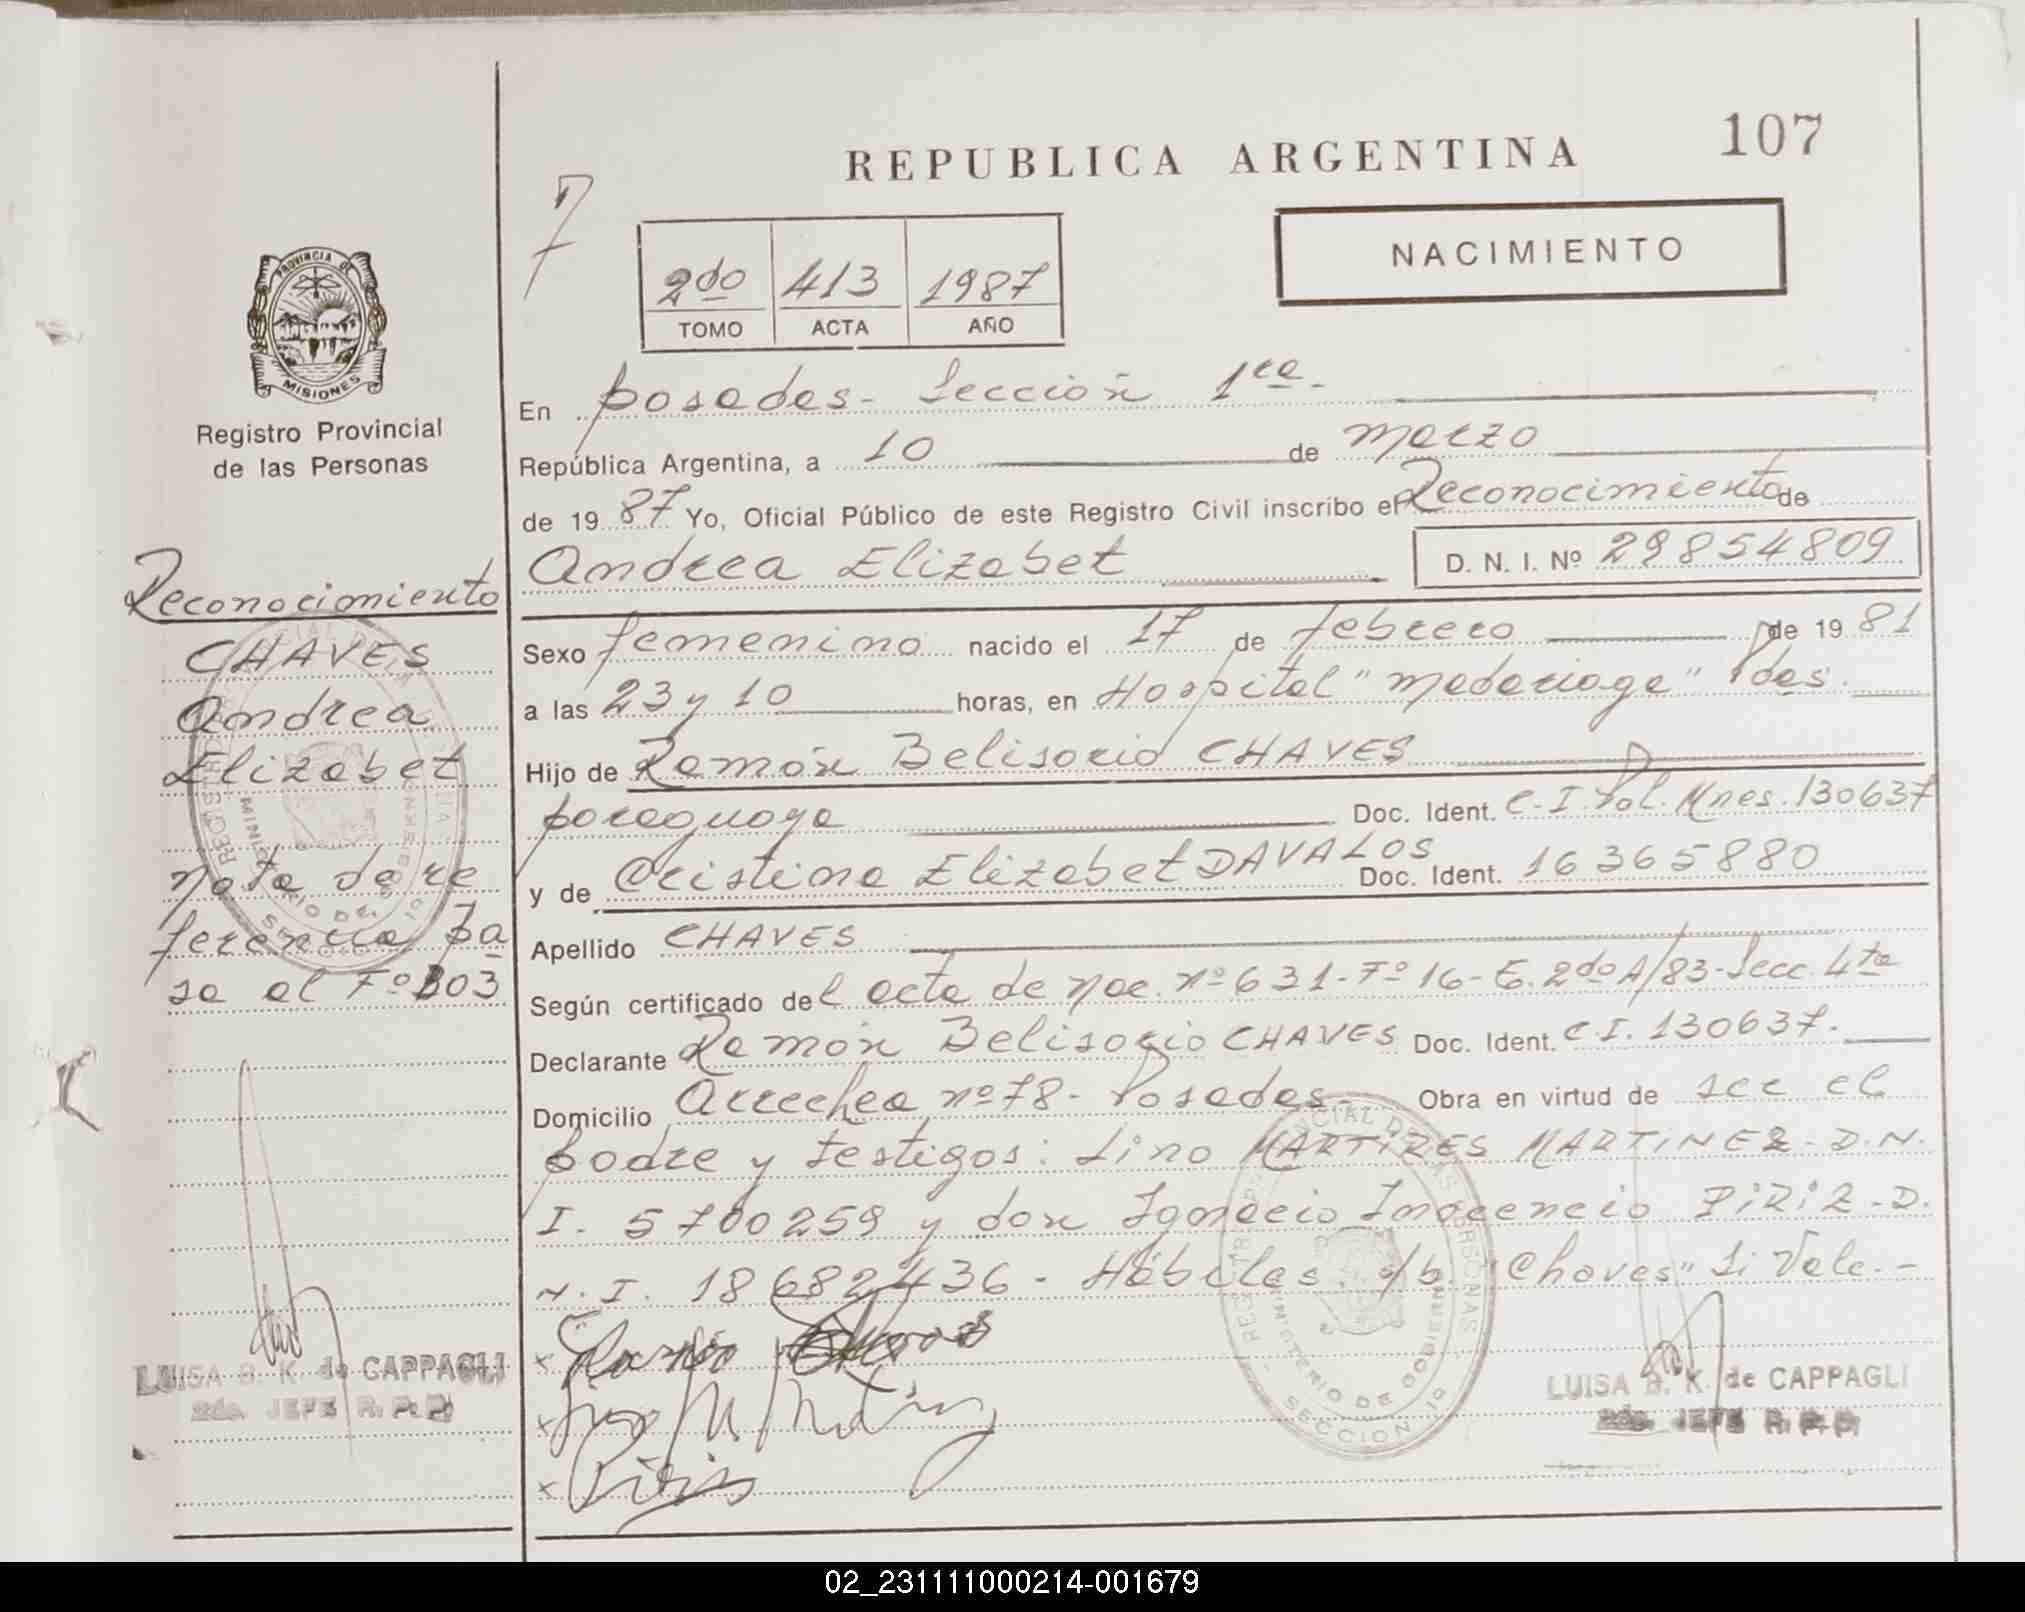 107
REPUBLICA ARGENTINA
NACIMIENTO
2do 413 1987
TOMO ACTA AÑO
PROVINCIA DE
MISIONES
Registro Provincial
de las Personas
Reconocimiento
CHAVES
Andrea
Elizabet
nota de re
ferencia pa
sa al Fº 303
LUISA B. K. de CAPPAGLI
2da. JEFE R. P. P.
En Posadas - Sección 1ra -
República Argentina, a 10 de marzo
de 19 87 Yo, Oficial Público de este Registro Civil inscribo el Reconocimiento de
Andrea Elizabet D. N. I. Nº 29854809
Sexo femenino nacido el 17 de febrero de 19 81
a las 23 y 10 horas, en Hospital "Madariaga" Pdas.
Hijo de Ramón Belisario CHAVES
paraguaya Doc. Ident. C. I. Pol. Mnes. 130637
y de Cristina Elizabet DAVALOS Doc. Ident. 16365880
Apellido CHAVES
Según certificado del acta de nac. nº 631 - Fº 16 - 2do A/83 - Secc. 4ta
Declarante Ramón Belisario CHAVES Doc. Ident. C. I. 130637.
Domicilio Arrechea nº 78 - Posadas - Obra en virtud de ser el
padre y testigos: Lino MARTIRES MARTINEZ - D. N.
I. 5700259 y don Ignacio Inocencio PIRIZ - D.
N. I. 18682436 - Hábiles. s/b. "Chaves" Si Vale. -
REGISTRO PROVINCIAL DE LAS PERSONAS
MINISTERIO DE GOBIERNO
SECCION 1º
LUISA B. K. de CAPPAGLI
2da. JEFE R. P. P.
02_231111000214-001679